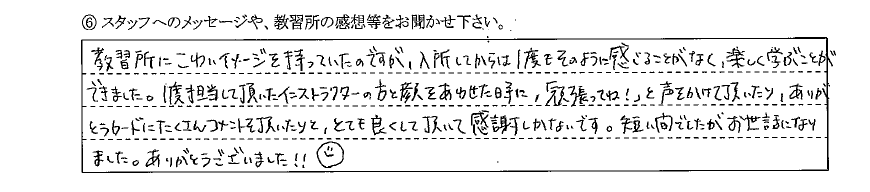 ⑥ スタッフへのメッセージや、教習所の感想等をお聞かせ下さい。
教習所にこわいイメージを持っていたのですが、入所してからは1度もそのように感じることがなく、楽しく学ぶことが
できました。1度担当して頂いたインストラクターの方と顔をあわせた時に、「頑張ってね！」と声をかけて頂いたり、ありが
とうカードにたくさんコメントを頂いたりと、とても良くして頂いて感謝しかないです。短い間でしたがお世話になり
ました。ありがとうございました!!